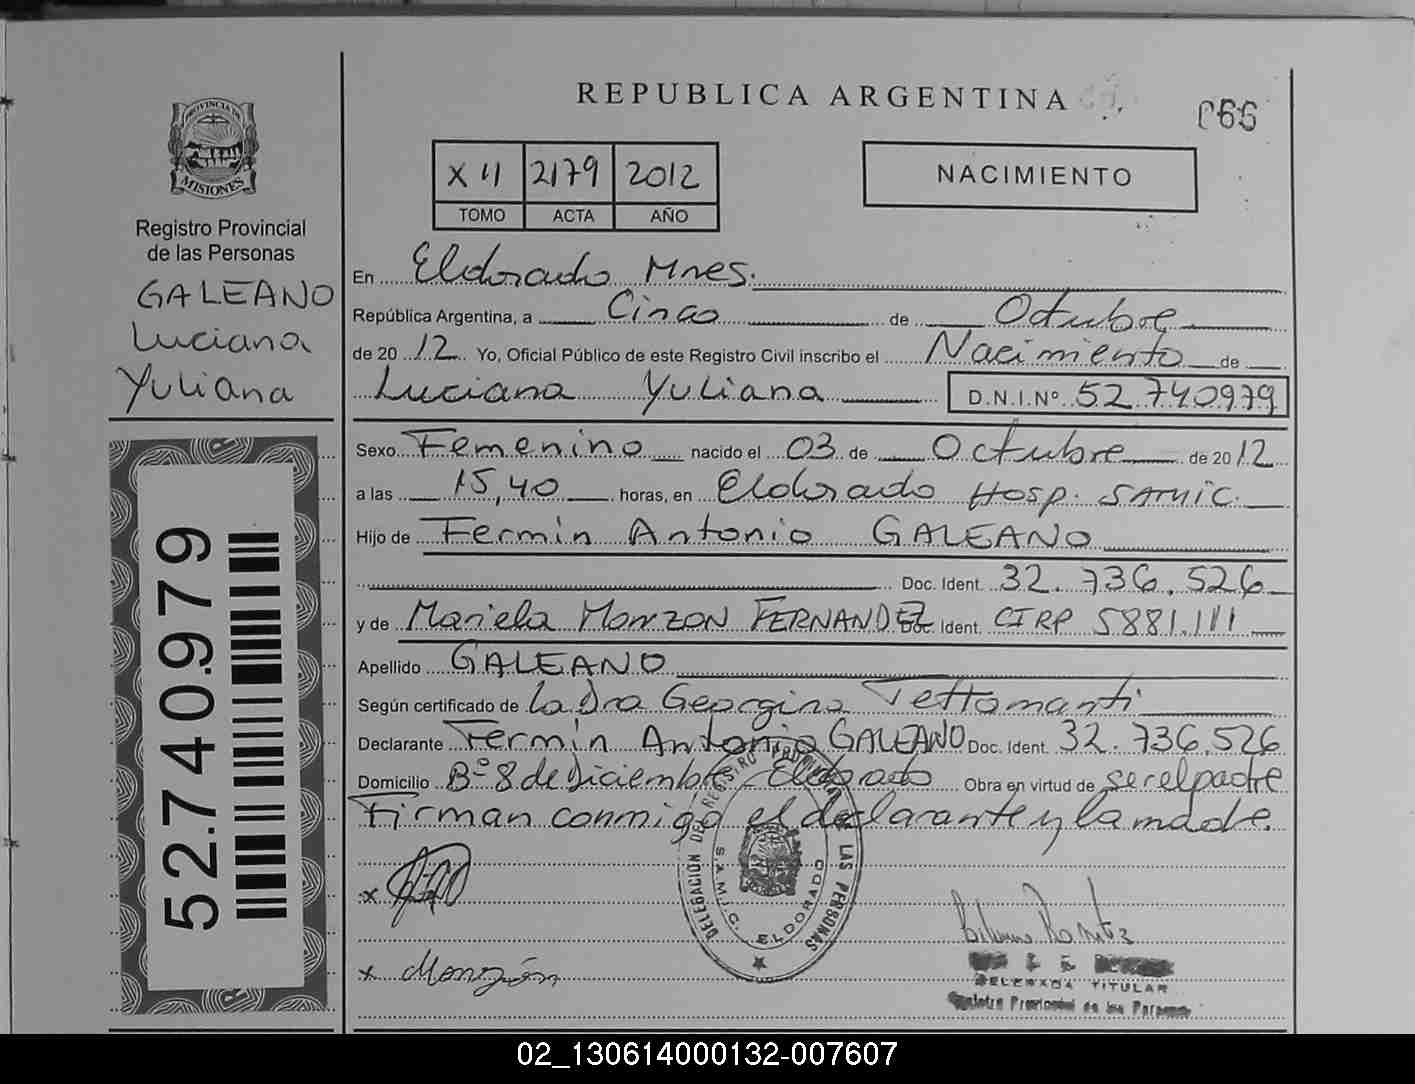 REPUBLICA ARGENTINA
066
PROVINCIA DE
MISIONES
Registro Provincial
de las Personas
GALEANO
Luciana
Yuliana
52.740.979
X 11 2179 2012
TOMO ACTA AÑO
NACIMIENTO
En Eldorado Mnes.
República Argentina, a Cinco de Octubre
de 20 12 Yo, Oficial Público de este Registro Civil inscribo el Nacimiento de
Luciana Yuliana D.N.I.Nº 52.740979
Sexo Femenino nacido el 03 de Octubre de 20 12
a las 15,40 horas, en Eldorado Hosp. SAMIC.
Hijo de Fermin Antonio GALEANO
Doc. Ident. 32.736.526
y de Mariela MONZON FERNANDEZ Doc. Ident. CIRP 5881.111
Apellido GALEANO
Según certificado de la Dra Georgina Tettamanti
Declarante Fermin Antonio GALEANO Doc. Ident. 32.736.526
Domicilio Bº 8 de Diciembre - Eldorado Obra en virtud de ser el padre
Firman conmigo el declarante y la madre.
x
x Monzón
DELEGACIÓN DEL REGISTRO PROVINCIAL DE LAS PERSONAS
S.A.M.I.C. ELDORADO
DELEGADA TITULAR
Registro Provincial de las Personas
02_130614000132-007607